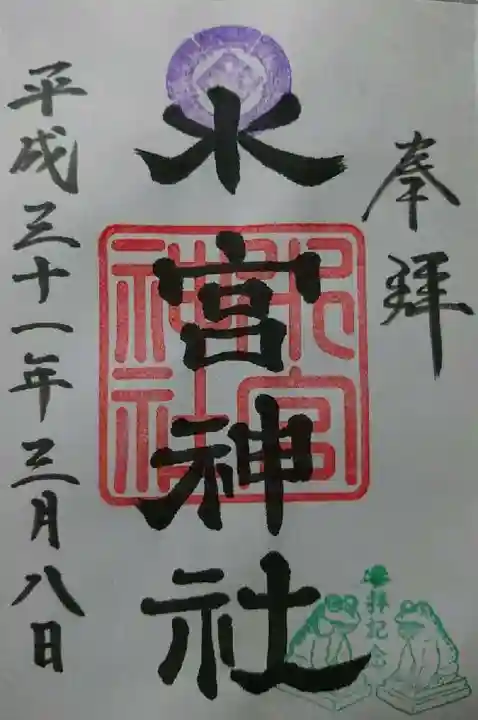 奉拝
水宮神社
平成三十一年三月八日
神社
参拝記念